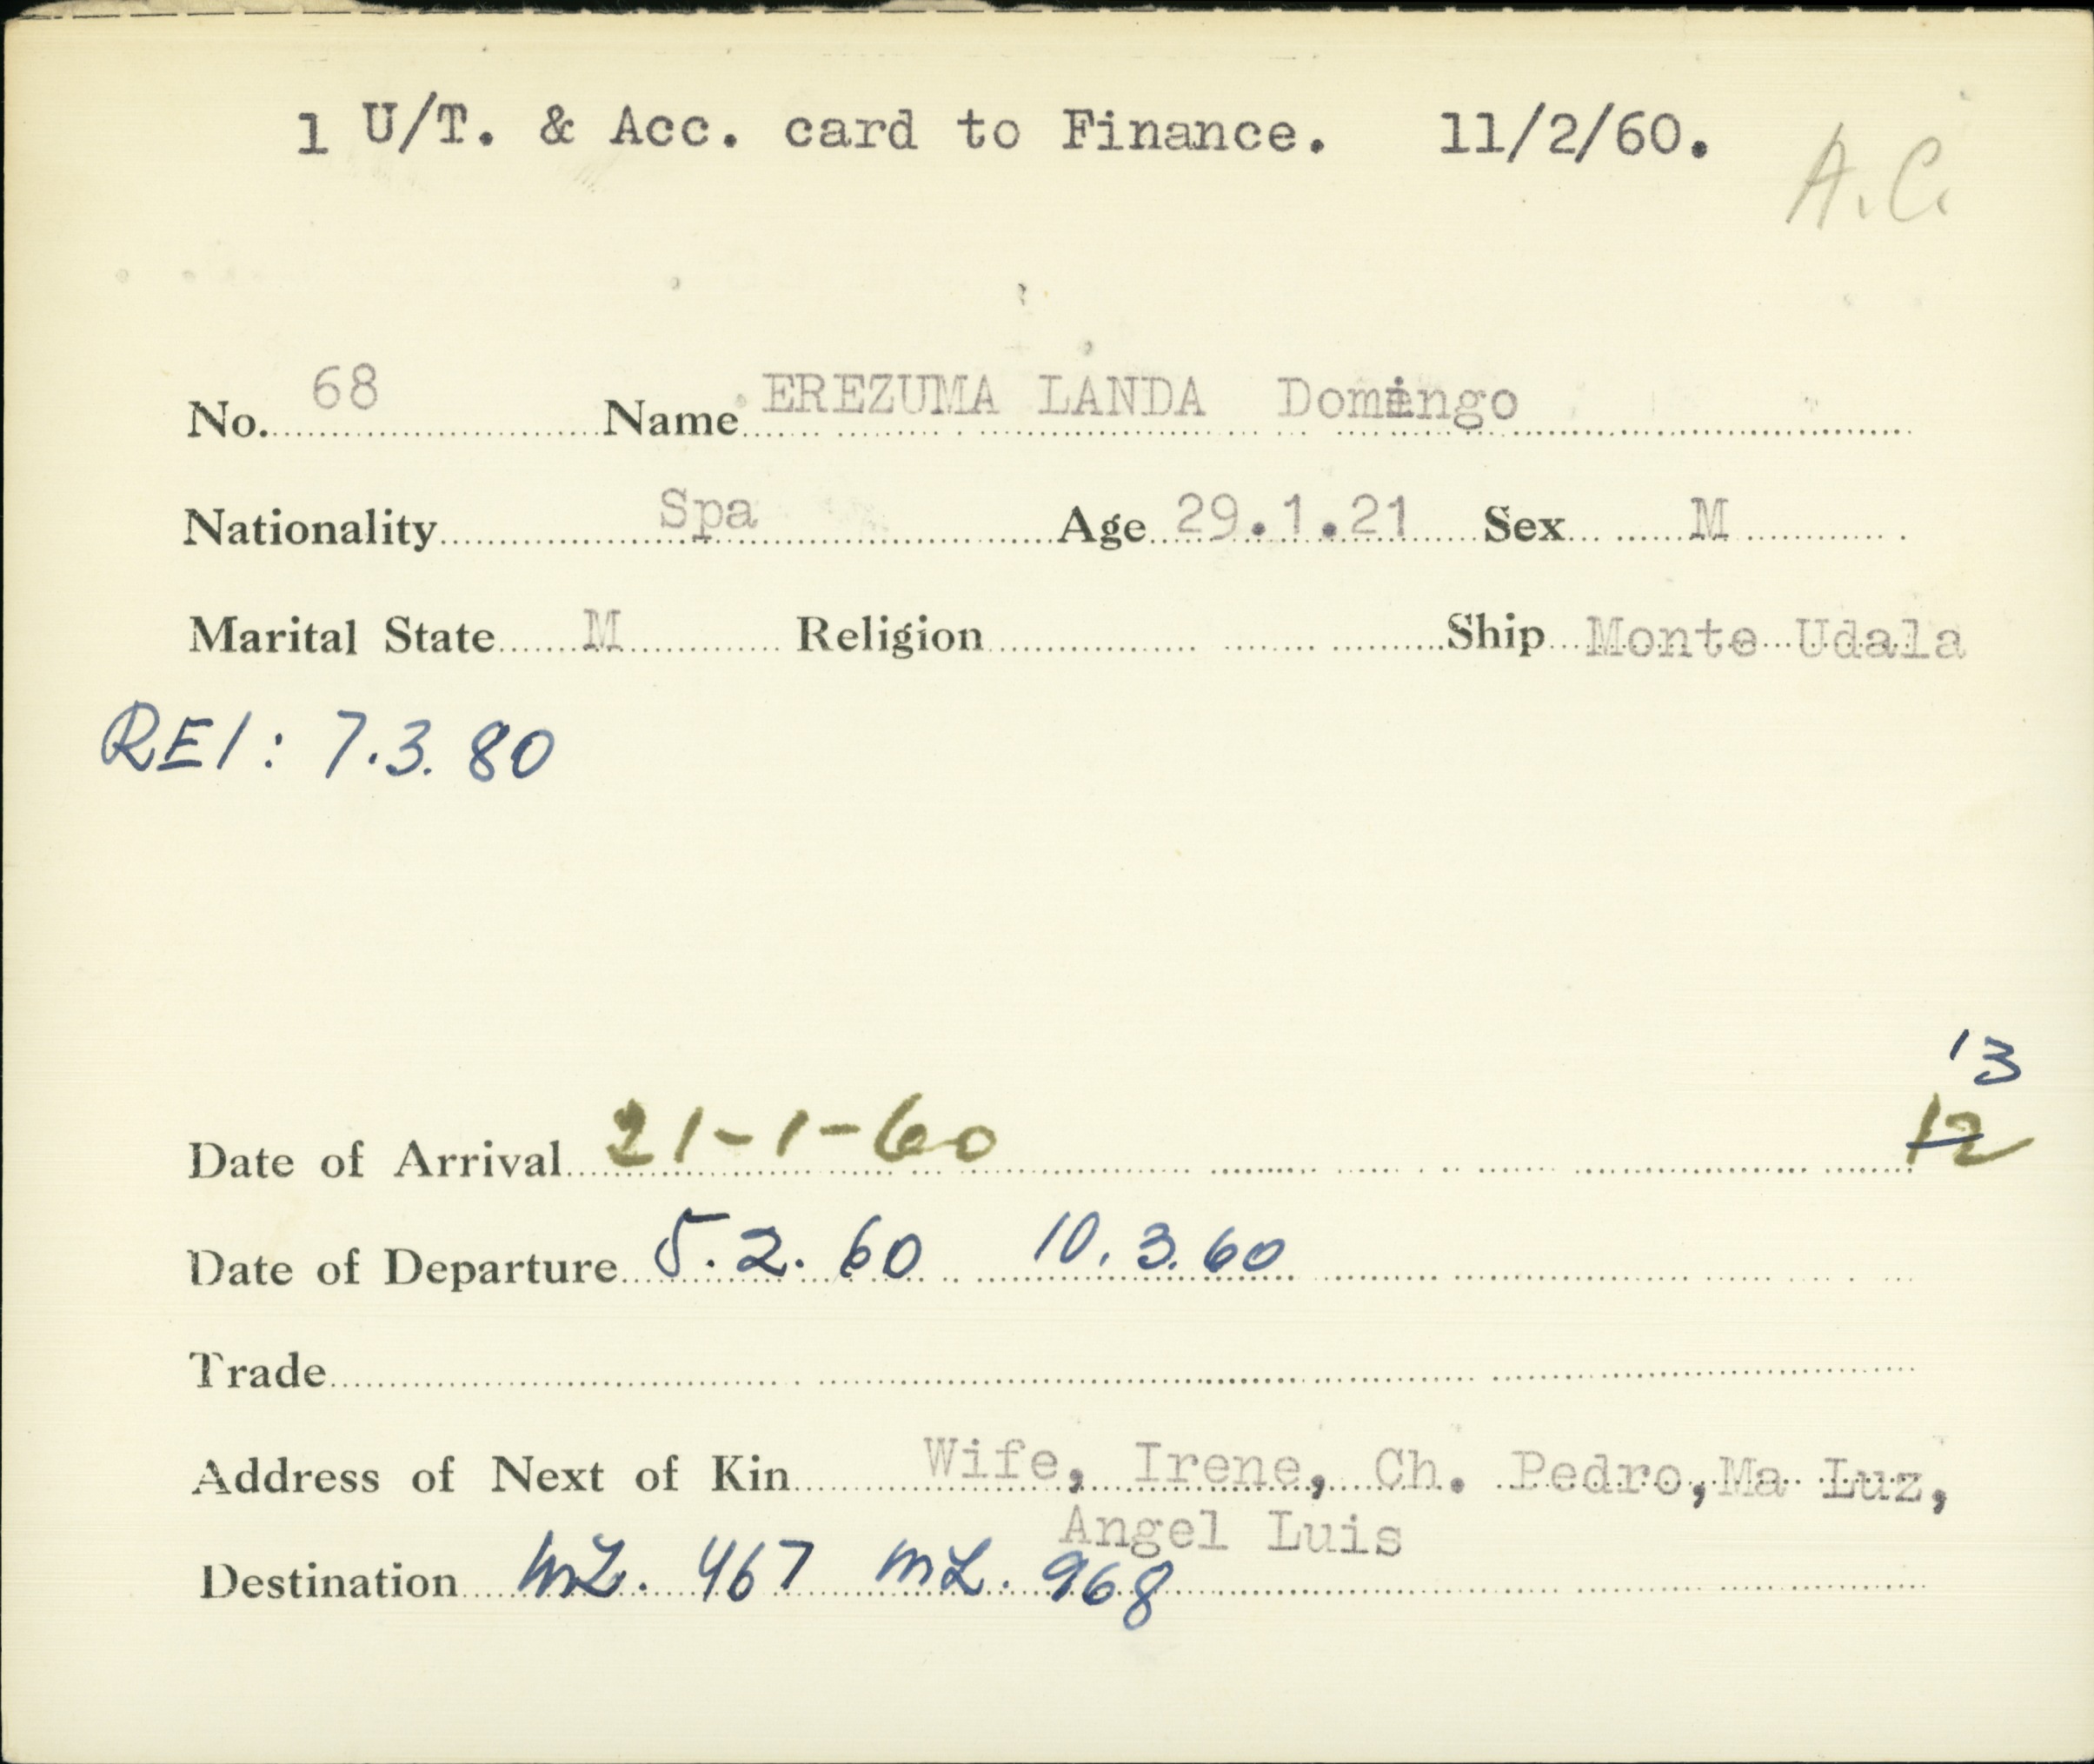 1 U/T. & Acc. card to Finance. 11/2/60.
A.C.
No. 68 Name EREZUMA LANDA Domingo
Nationality Spa Age 29.1.21 Sex M
Marital State M Religion Ship Monte Udala
RE1: 7.3.80
13
Date of Arrival 21-1-60 12
Date of Departure 5.2.60 10.3.60
Trade
Address of Next of Kin Wife, Irene, Ch. Pedro, Ma Luz,
Angel Luis
Destination ML. 467 ML. 968